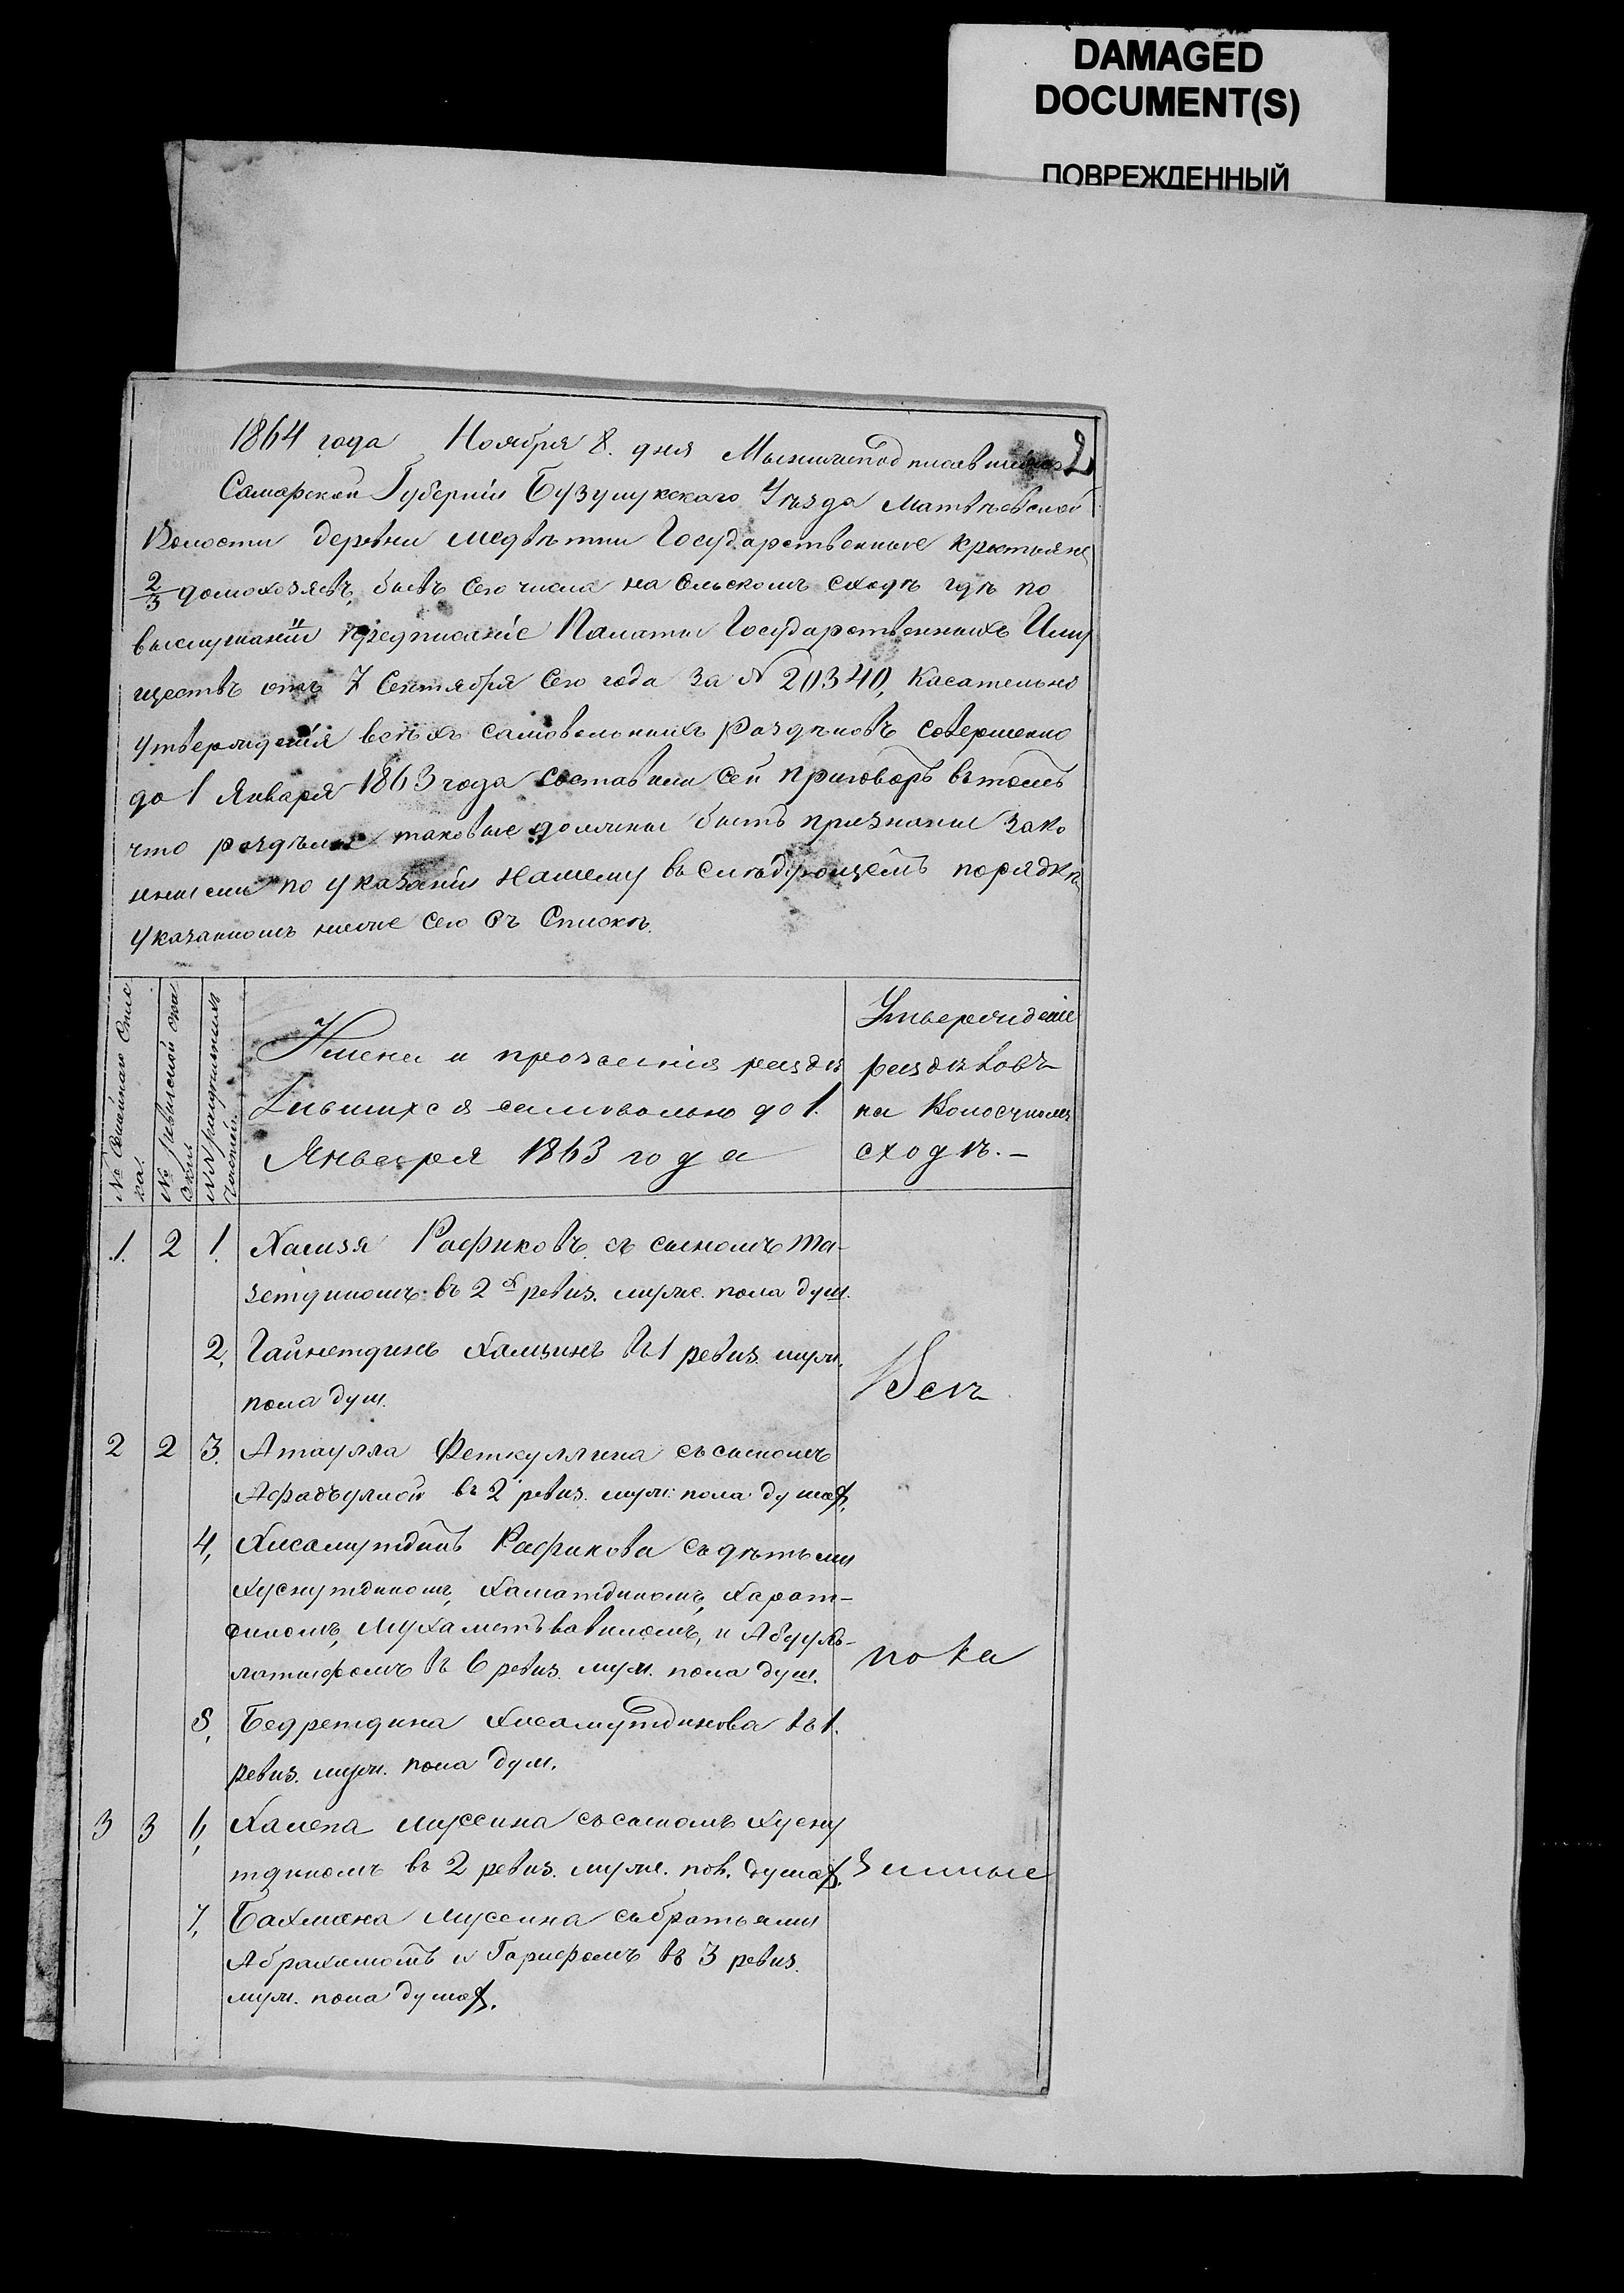 DAMAGED
DOCUMENT(S)
ПОВРЕЖДЕННЫЙ
2
1864 года Ноября 8. дня Мы
Самарской Губерніи Бузулукскаго Уѣзда Матвѣевской
Волости деревни Медвѣтки Государственные крестьяне
2/3 домохозяевъ, бывъ сего числа на сельскомъ сходѣ гдѣ по
выслушаніи предписаніе Палаты Государственныхъ Иму
ществъ отъ 7 Сентября сего года за № 20340, касательно
утвержденія всѣхъ самовольныхъ раздѣловъ совершенно
до 1 Января 1863 года составили сей приговоръ въ томъ
что раздѣлы таковые должны быть признаны зако
нными по указанію нашему въ слѣдующемъ порядкѣ
указанномъ ниже сего въ Спискѣ.
№ Семейнаго Спис
ка.
№ ревизской ска
ски
№№ раздѣльныхъ
Имена и прозванія раздѣ
лившихся самовольно до 1.
Января 1863 года
Утвержденіе
раздѣловъ
на Волосчномъ
сходѣ. -
1. 2 1. Хамзя Рафиковъ съ сыномъ Та-
зетдиномъ въ 2х ревиз. муже. пола душ.
2, Гайнетдинъ Хамзинъ въ 1 ревиз. муж.
пола душ.
Всѣ
2 2 3. Атаулла Феткуллина съ сыномъ
въ 2 ревиз. муж. пола душах.
4, Хисамутдинъ Рафикова съ дѣтьми
Хуснутдиномъ, Хаматдиномъ, Харат-
диномъ, и Абдулъ-
латифомъ въ 6 ревиз. муж. пола душ.
пока
5, Бедретдина Хисамутдинова въ 1.
ревиз. муж. пола душ.
3 3 6, Халепа Мусеина съ сыномъ Хусну
тдиномъ въ 2 ревиз. муже. пол. душах.
7, Мусеина съ братьями
Абрахимомъ и Гарифомъ въ 3 ревиз.
муж. пола душах.